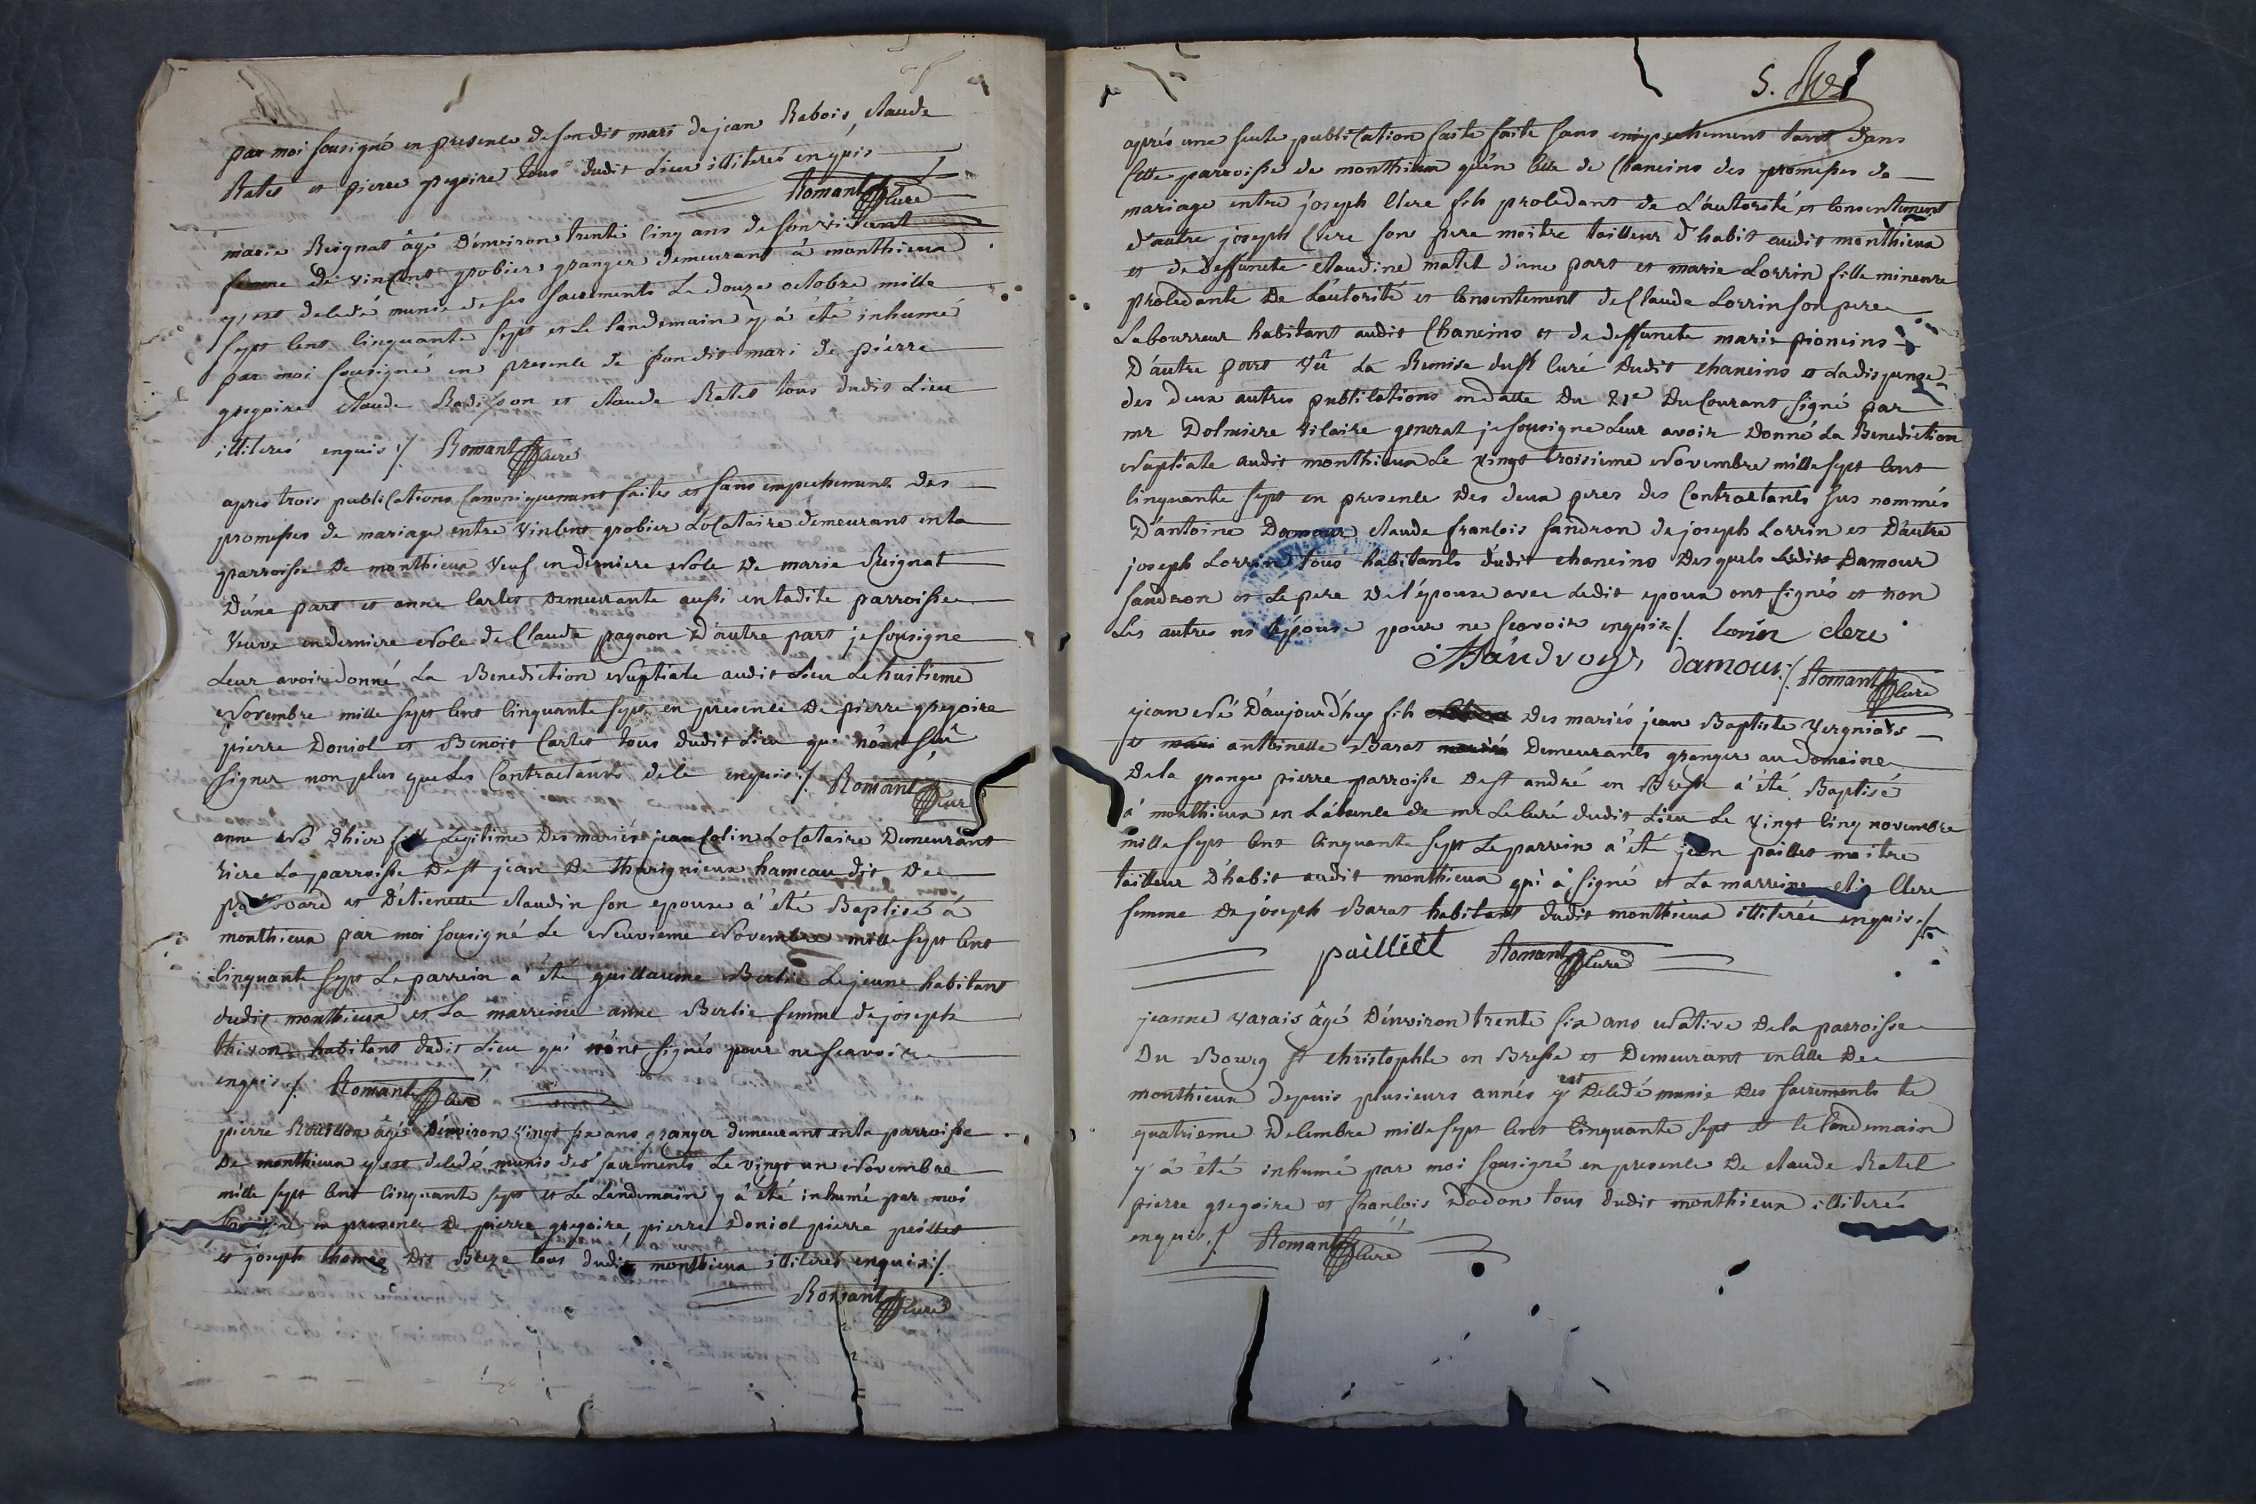 par moi sousigné en presence de son dit mari de jean Rabois, claude
Ratet et pierre gregoire tous dudit Lieu illiterés enquis
Romant Curé
marie Reignat âgé D'environ trente cinq ans de son vivant
femme de vincent grobier granger demeurant à monthieux
y est decedé munie de ses sacrements Le douze octobre mille
sept cent cinquante sept et Le Landemain y à été inhumé
par moi sousigné en presence de son dit mari de pierre
gregoire claude Radisson et claude Ratet tous dudit Lieu
illiterés enquis ./. Romant Curé
apres trois publications Canoniquement faites et sans empechement des
promesses de mariage entre vincent grobier Locataire demeurant en la
parroisse De monthieux veuf en derniere Nole De marie Reignat
D'une part et anne Cartet Demeurante aussi en ladite parroisse
veuve en derniere Nole de Claude pagnon D'autre part je sousigne
Leur avoir donné La Benediction Nuptiale audit Lieu Le huitieme
Novembre mille sept cent cinquante sept en presence De pierre gregoire
pierre Doniol et Benoit Cartet tous dudit Lieu qui n'ont sçu
signer non plus que Les Contractants de ce enquis ./. Romant Curé
anne Né d'hier Legitime Des mariés jean Colin Locataire Demeurant
riere La parroisse De st jean De Thurignieux hameau dit De
et D'étienette claudin son epouse à été Baptisé à
monthieux par moi sousigné Le Neuvieme Novembre mille sept cent
cinquante sept Le parrein a été guillaume Berlie Le jeune habitant
dudit monthieux et La marreine anne Berlie femme de joseph
thivon habitant dudit Lieu qui n'ont signés pour ne sçavoir
enquis ./. Romant Curé
pierre Rousson âgé D'environ vingt six ans granger demeurant en la parroisse
De monthieux y est decedé munis des sacrements Le vingt un Novembre
mille sept cent cinquante sept et Le Landemain y à été inhumé par moi
sousigné en presence De pierre gregoire, pierre Doniol pierre peillet
et joseph thomas Dit Beze tous dudit monthieux illiterés enquis ./.
Romant Curé
5.
aprés une seule publication faite faite sans empechement tant dans
Cette parroisse de monthieux qu'en Celle de Chaneins des promesses de
mariage entre joseph Clere fils procedant de L'autorité et Consentement
d'autre joseph Clere son pere maitre tailleur d'habit audit monthieux
et de deffuncte claudine matel d'une part et marie Lorrin fille mineure
procedante De L'autorité et Consentement de Claude Lorrin son pere
Labourreur habitant audit Chaneins et de deffuncte marie pioneins
D'autre part vû La Remise du Sr Curé Dudit chaneins et La dispense
des deux autres publications en datte Du 21e Du Courant signé par
mr Dolmiere vicaire general je sousigne Leur avoir Donné La Benediction
Nuptiale audit monthieux Le vingt troisieme Novembre mille sept cent
cinquante sept en presence Des deux peres des Contractants sus nommés
D'antoine Damour claude françois Sandron de joseph Lorrin et D'autre
joseph Lorrin tous habitants dudit chaneins Desquels Ledit Damour
Sandron et Le pere De l'épouse avec Ledit epoux ont signés et non
Les autres ni L'épouse pour ne sçavoir enquis ./. Lorin clere
damour ./. Romant Curé
jean Né D'aujourd'huy fils Des mariés jean Baptiste Vergniais
et antoinette Barat Demeurants granger au Domaine
De la grange pierre parroisse De st andré en Bresse à été Baptisé
à monthieux en L'absence de mr Le Curé dudit Lieu Le vingt cinq novembre
mille sept cent cinquante sept Le parrein à été jean paillet maitre
tailleur D'habit audit monthieux qui à signé et La marreine Clere
femme De joseph Barat habitant dudit monthieux illiterée enquis ./.
pailliet Romant Curé
jeanne varais âgé D'environ trente six ans Native De la parroisse
Du Bourg st christophle en Bresse et Demeurant en Celle De
monthieux depuis plusieurs annés y est Decedé munie Des sacrements le
quatrieme Decembre mille sept cent cinquante sept et le Landemain
y à été inhumé par moi sousigné en presence De claude Ratel
pierre gregoire et françois Dadon tous dudit monthieux illiterés
enquis ./. Romant Curé